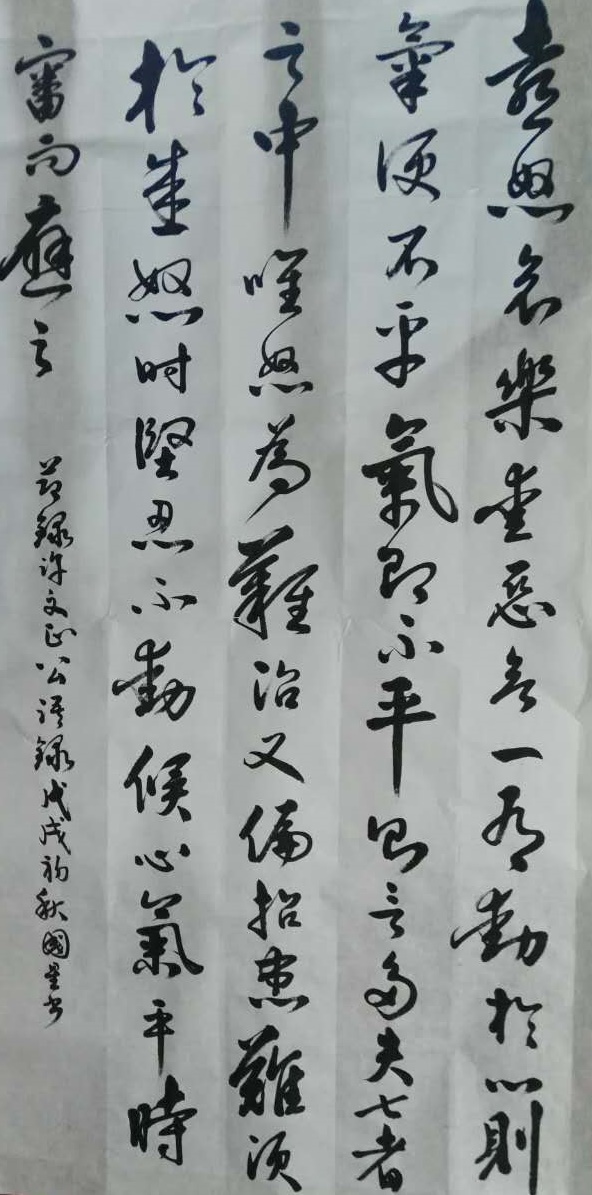 喜怒哀樂愛惡一有動於心則
氣便不平氣即不平則言多失七者
之中唯怒為難治又偏招患難須
於盛怒时堅忍不動候心氣平時
審而應之
節録许文正公语録戊戌初秋國星书